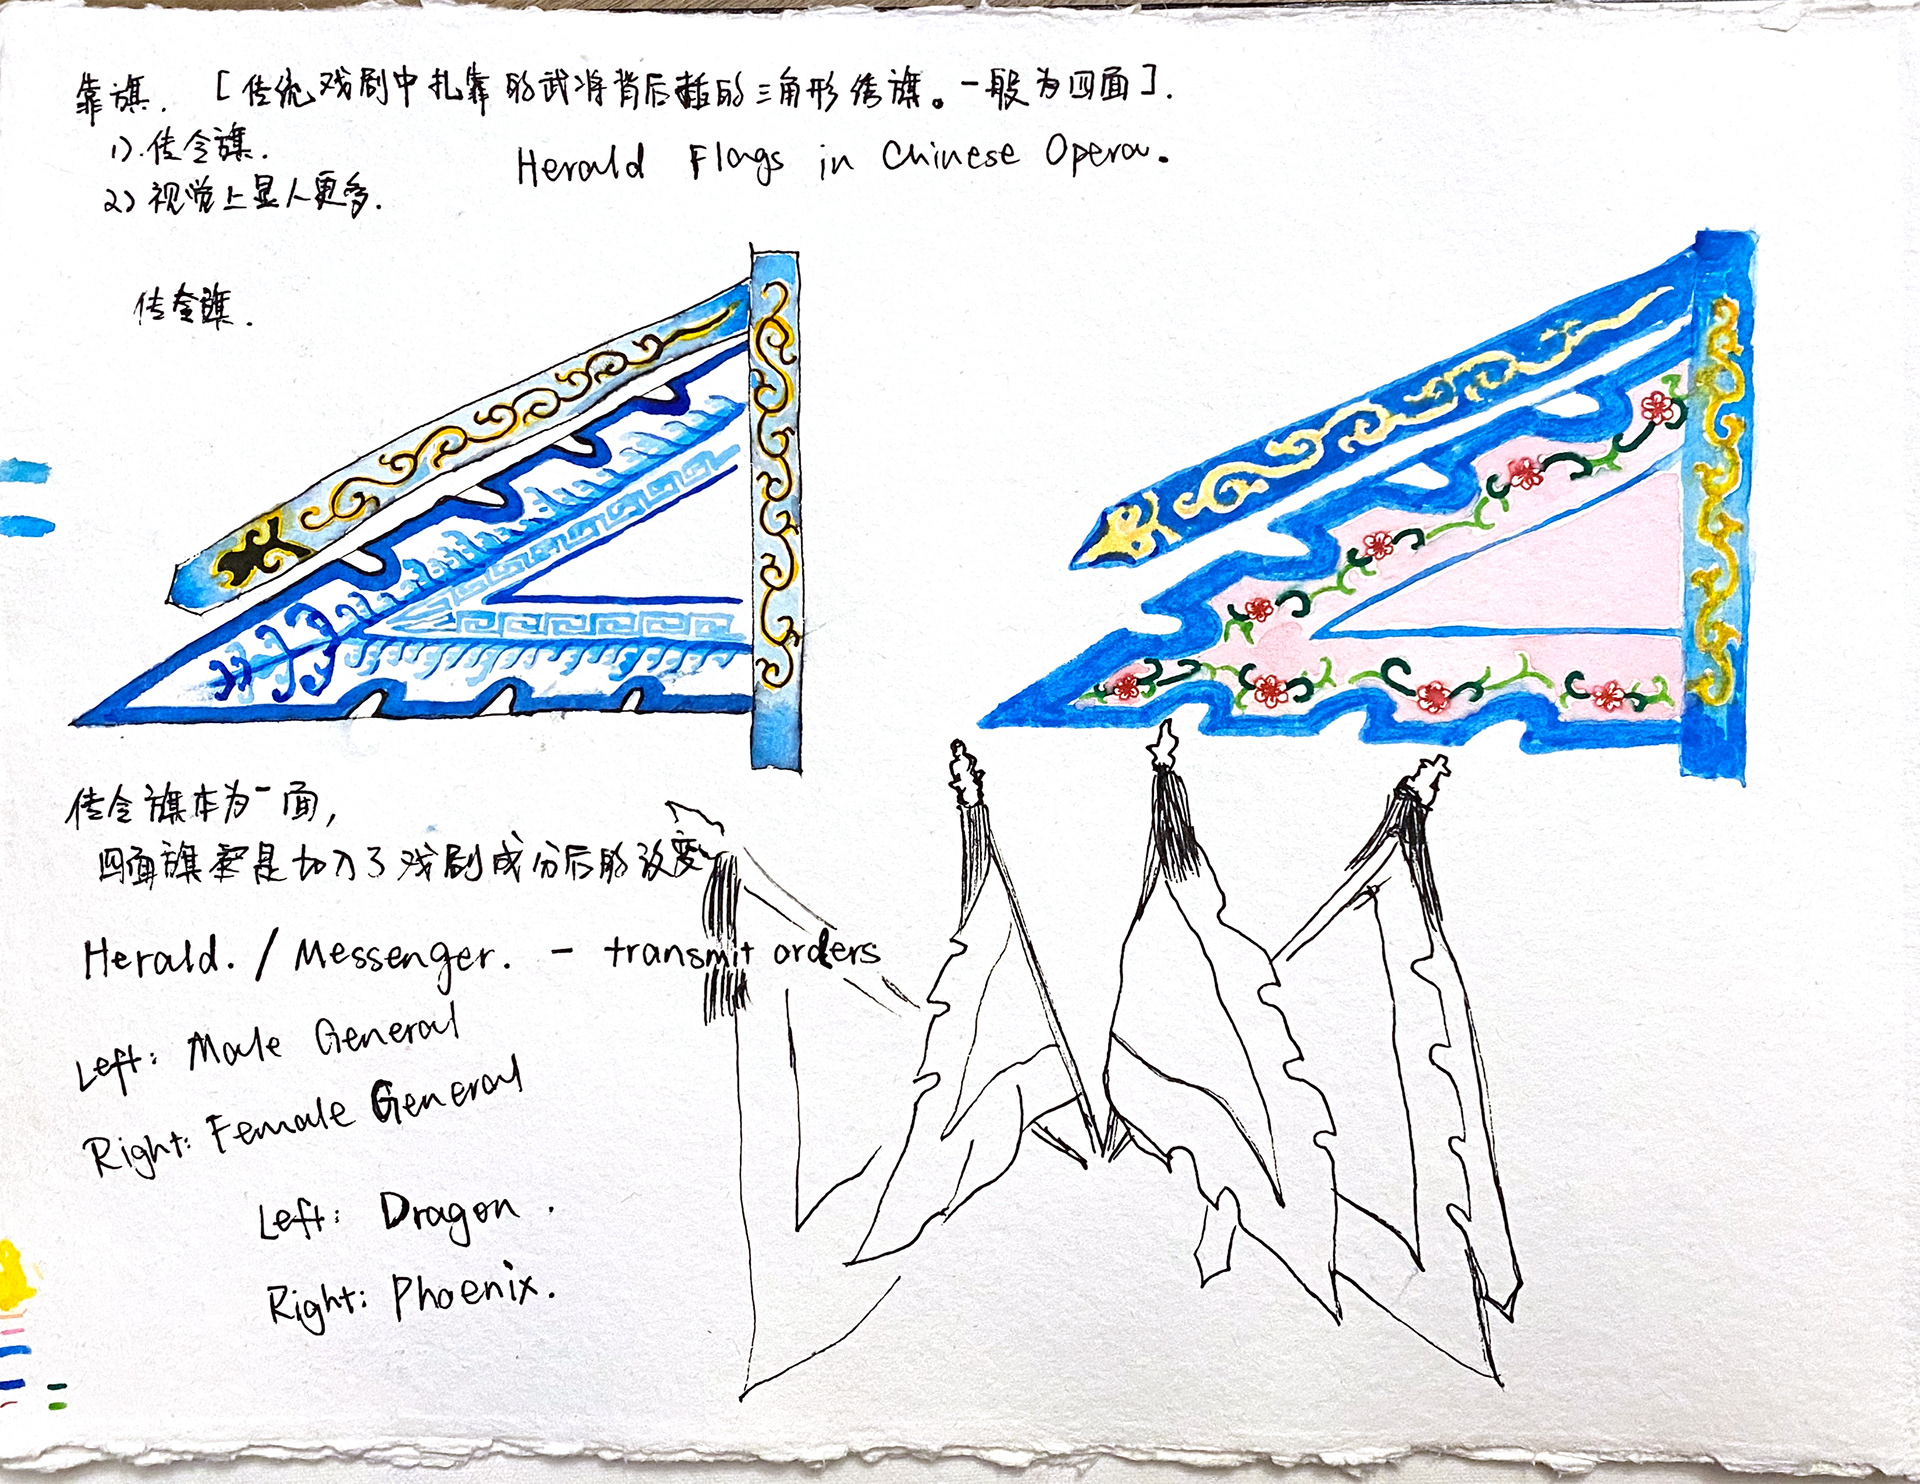 靠旗. [传统戏剧中扎靠的武将背后插的三角形绣旗。一般为四面].
1).传令旗.
2) 视觉上显人更多.
Herald Flags in Chinese Opera.
传令旗.
传令旗本为一面,
四面旗是切入了戏剧成分后的改变
Herald. / Messenger. - transmit orders
Left: Male General
Right: Female General
Left: Dragon.
Right: Phoenix.